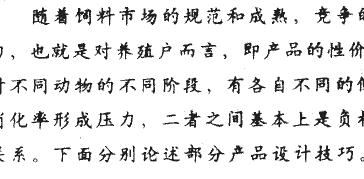 随着饲料市场的规范和成熟，竞争的
，也就是对养殖户而言，即产品的性价
不同动物的不同阶段，有各自不同的
化率形成压力，二者之间基本上是负相
关系。下面分别论述部分产品设计技巧。